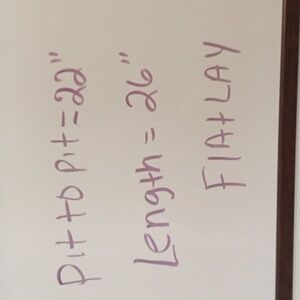 pit to pit = 22"
Length = 26"
FlAtLAY